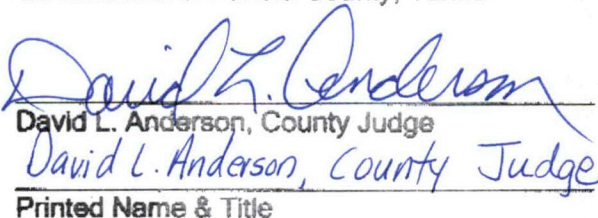 County,
David L. Anderson
David L. Anderson, County Judge
David L. Anderson, County Judge
Printed Name & Title